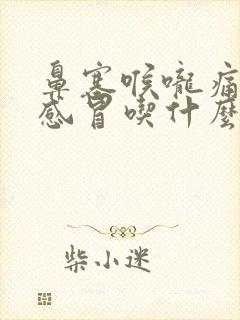 鼻塞喉嚨痛
感冒喫什麼
柴小迷